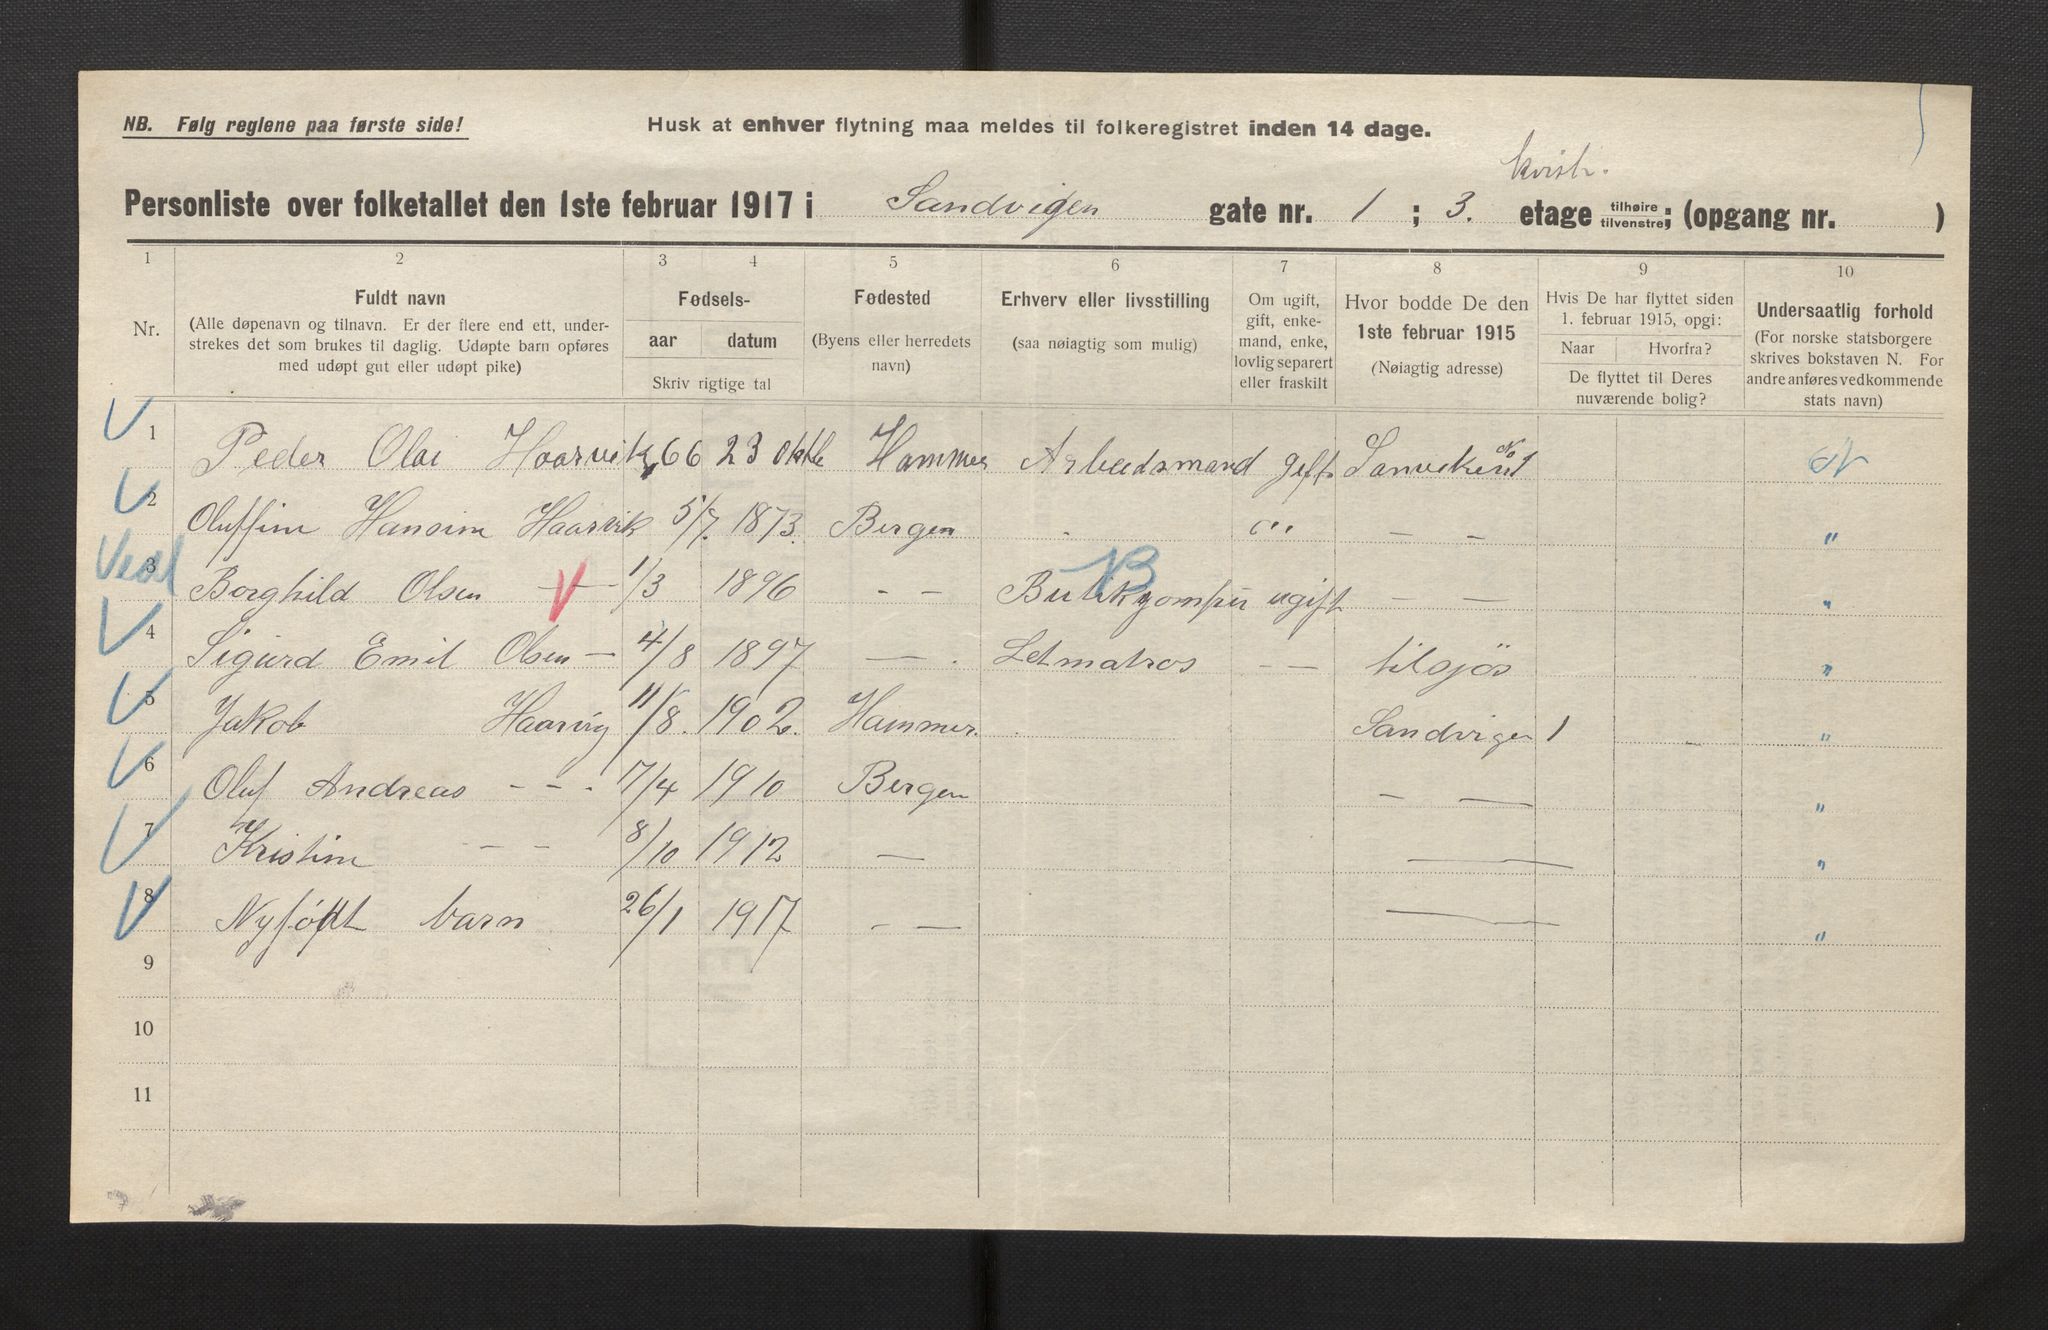 NB. Følg reglene paa første side!
Husk at enhver flytning maa meldes til folkeregistret inden 14 dage.
kvist.
Personliste over folketallet den 1ste februar 1917 i Sandvigen gate nr. 1 ; 3. etage tilhøire tilvenstre; (opgang nr. )
1 2 3 4 5 6 7 8 9 10
Nr.
Fuldt navn
(Alle døpenavn og tilnavn. Er der flere end ett, under-
strekes det som brukes til daglig. Udøpte barn opføres
med udøpt gut eller udøpt pike)
Fødsels-
aar datum
Skriv rigtige tal
Fødested
(Byens eller herredets
navn)
Erhverv eller livsstilling
(saa nøiagtig som mulig)
Om ugift,
gift, enke-
mand, enke,
lovlig separert
eller fraskilt
Hvor bodde De den
1ste februar 1915
(Nøiagtig adresse)
Hvis De har flyttet siden
1. februar 1915, opgi:
Naar Hvorfra?
De flyttet til Deres
nuværende bolig?
Undersaatlig forhold
(For norske statsborgere
skrives bokstaven N. For
andre anføres vedkommende
stats navn)
1 Peder Olai Haarvik 66 23 Hammer Arbeidsmand gift No 1 N
2 Oluffine Hansine Haarvik 5/7. 1873. Bergen " — — "
3 Borghild Olsen — V 1/3 1896 — — B ugift — — "
4 Sigurd Emil Olsen — 4/8 1897 — . Letmatros — — tilsjøs "
5 Jakob Haarvig 11/8. 1902. Hammer. Sandvigen 1 "
6 Oluf Andreas - - - 7/4 1910 Bergen — — "
7 Kristine — — 8/10 1912 — — "
8 Nyfødt barn 26/1 1917 — — — "
9
10
11